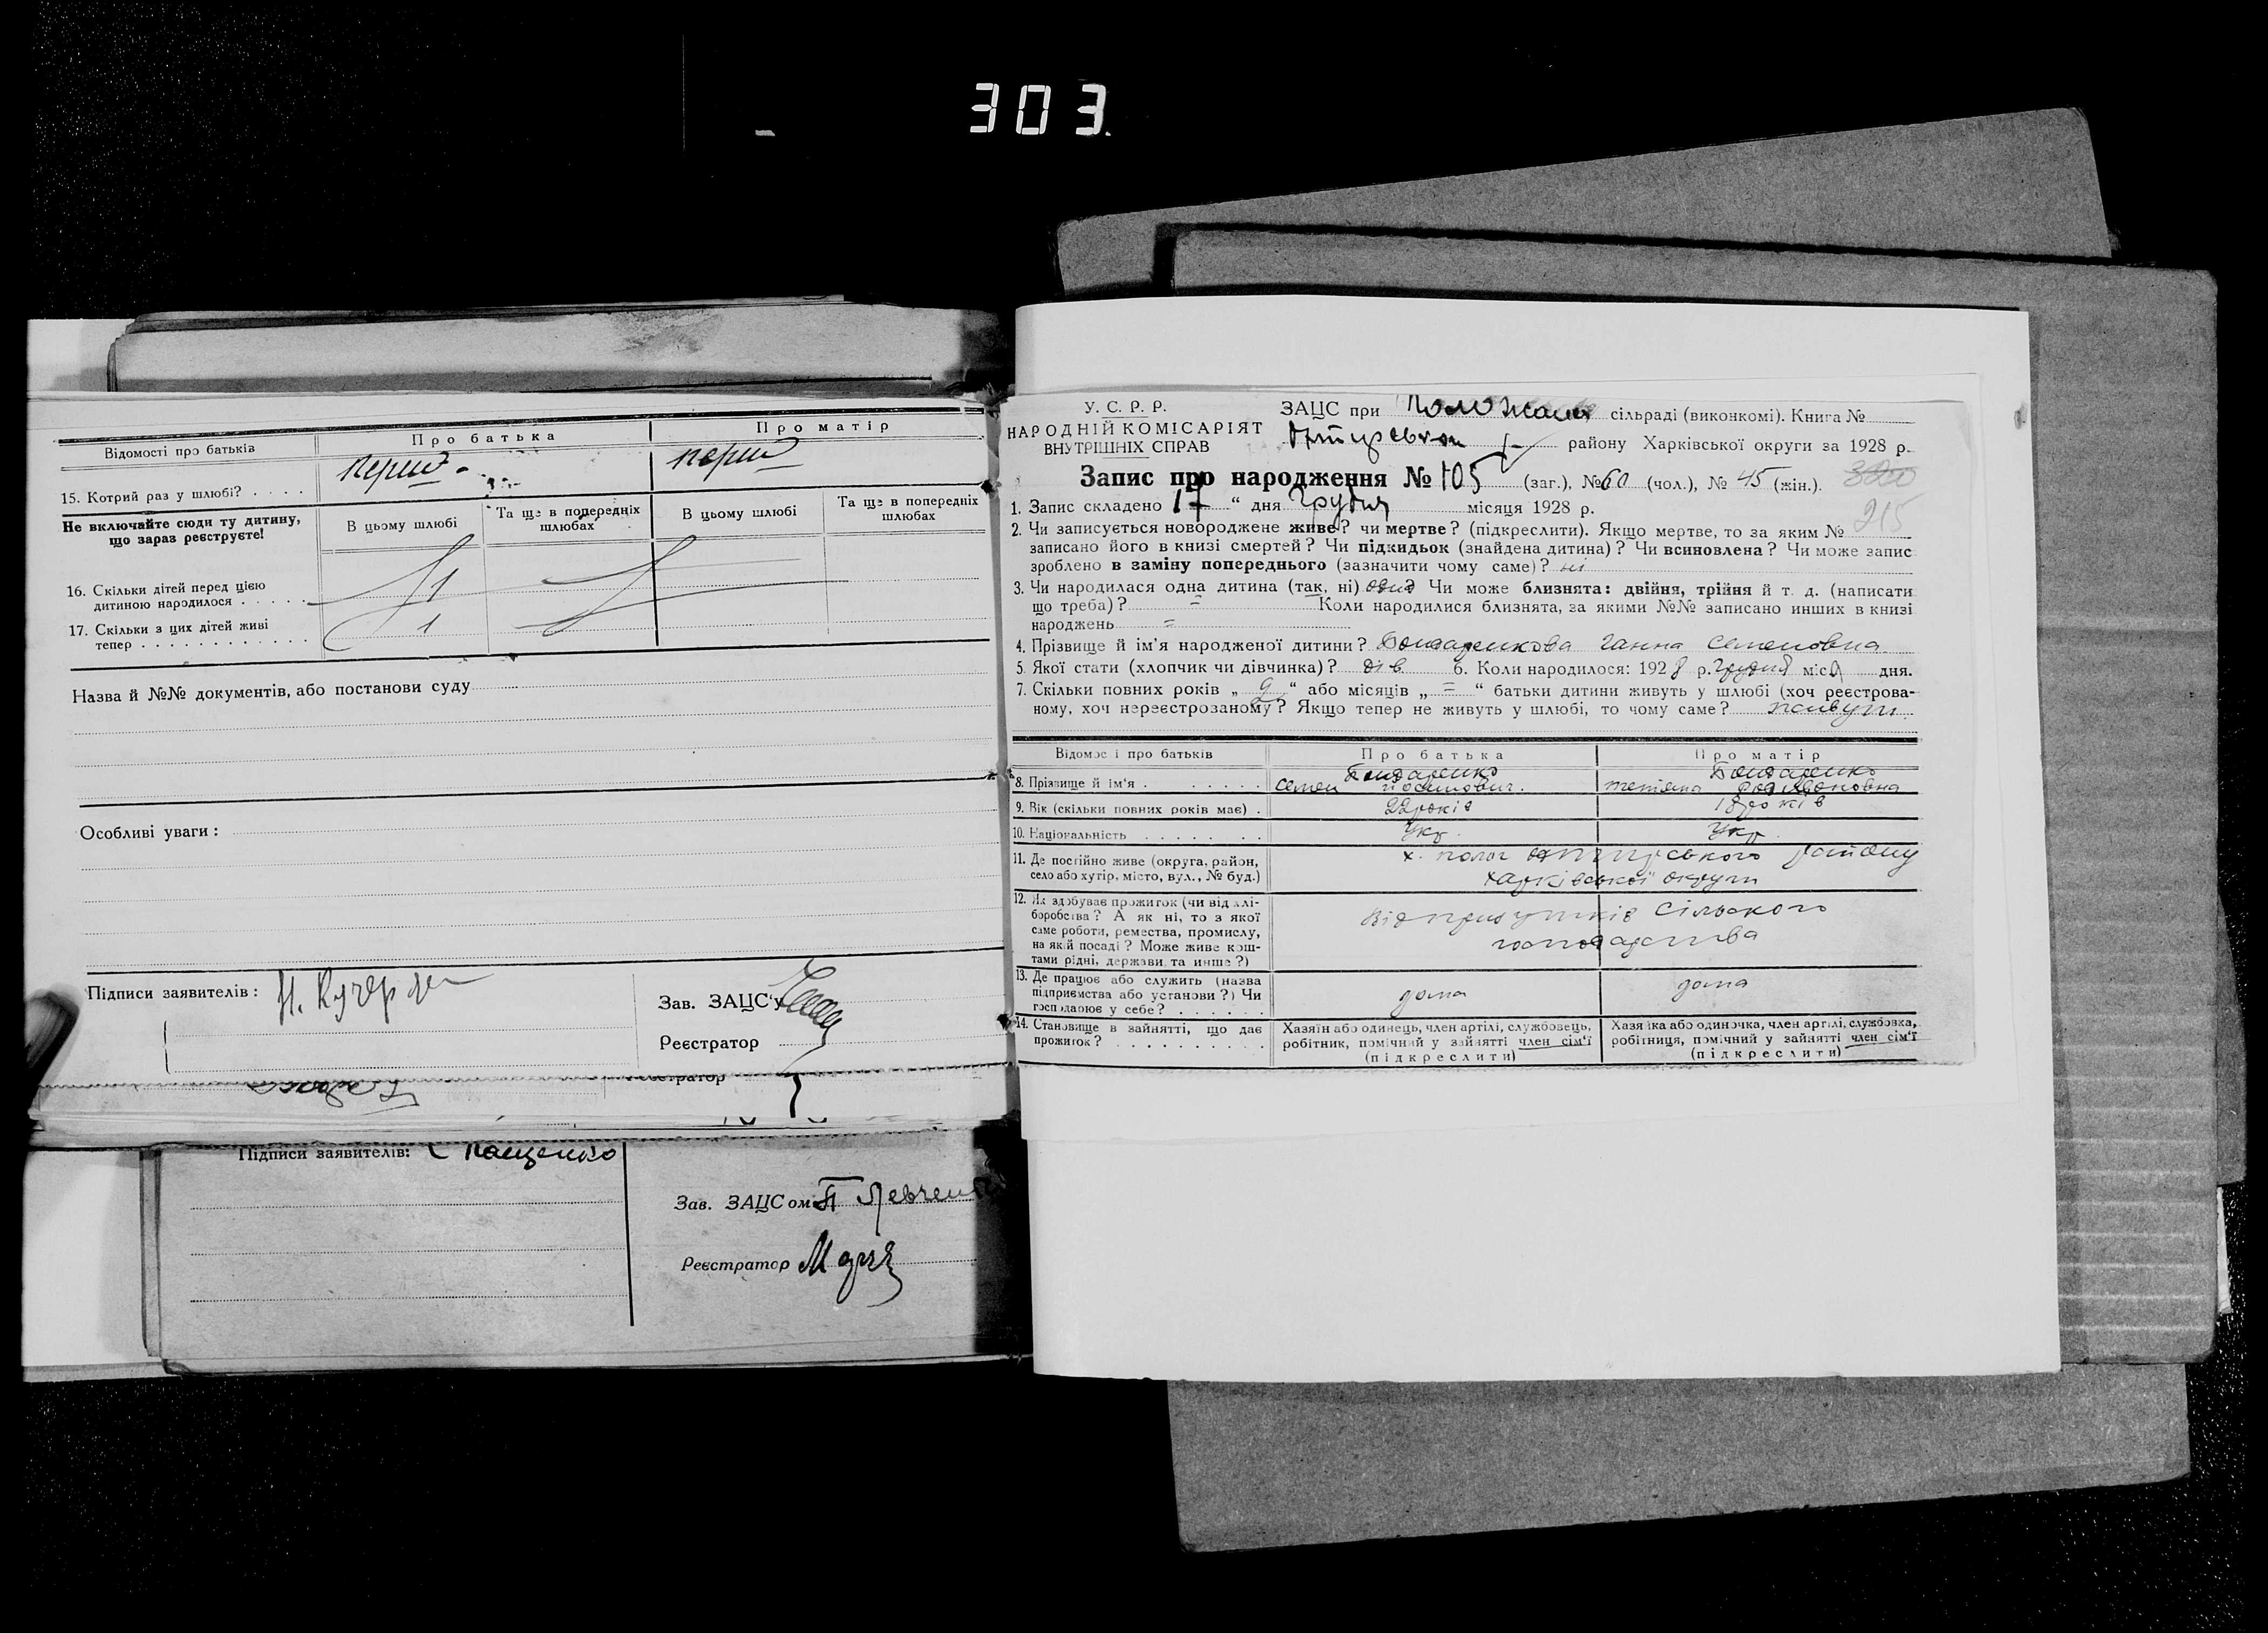 303.
Відомості про батьків
Про батька
Про матір
15. Котрий раз у шлюбі? . . . .
перш
перш
Не включайте сюди ту дитину,
що зараз реєструєте!
В цьому шлюбі
Та ще в попередніх
шлюбах
В цьому шлюбі
Та ще в попередніх
шлюбах
16. Скільки дітей перед цією
дитиною народилося . . . . .
1
17. Скільки з цих дітей живі
тепер . . . . . . . . . . . .
1
Назва й №№ документів, або постанови суду
Особливі уваги:
Підписи заявителів:
Зав. ЗАЦС
Реєстратор
Реєстратор
Підписи заявителів: Пащенко
Зав. ЗАЦСом П Левченко
Реєстратор
У. С. Р. Р.
НАРОДНІЙ КОМІСАРІЯТ
ВНУТРІШНІХ СПРАВ
ЗАЦС при сільраді (виконкомі). Книга №
району Харківської округи за 1928 р.
Запис про народження № 105 (заг.), № 60 (чол.), № 45 (жін.).
215
1. Запис складено 17 “ дня Грудня місяця 1928 р.
2. Чи записується новороджене живе? чи мертве? (підкреслити). Якщо мертве, то за яким №
записано його в книзі смертей? Чи підкидьок (знайдена дитина)? Чи всиновлена? Чи може запис
зроблено в заміну попереднього (зазначити чому саме)? ні
3. Чи народилася одна дитина (так, ні) одна Чи може близнята: двійня, трійня й т. д. (написати
що треба)? = Коли народилися близнята, за якими №№ записано инших в книзі
народжень =
4. Прізвище й ім’я народженої дитини? Бондаренкова Ганна Семеновна
5. Якої стати (хлопчик чи дівчинка)? дів 6. Коли народилося: 1928 р. Грудня міс. дня.
7. Скільки повних років „ 2 “ або місяців „ = “ батьки дитини живуть у шлюбі (хоч реєстрова-
ному, хоч нереєстрозаному? Якщо тепер не живуть у шлюбі, то чому саме? живуть
Відомості про батьків
Про батька
Про матір
8. Прізвище й ім'я . . . . . . .
Бондаренко
Семен Йосипович.
Бондаренко
тетяна Родивоновна
9. Вік (скільки повних років має) .
22 років
18 років
10. Національність . . . . . . .
Укр.
Укр.
11. Де постійно живе (округа, район,
село або хутір, місто, вул., № буд.)
х. району
Харківської округи
12. Як здобуває прожиток (чи від хлі-
боробства? А як ні, то з якої
саме роботи, ремества, промислу,
на якій посаді? Може живе кош-
тами рідні, держави та инше?)
сільского
господарства
13. Де працює або служить (назва
підприємства або установи?) Чи
господарює у себе? . . . . . .
дома
дома
14. Становище в зайнятті, що дає
прожиток? . . . . . . . . . .
Хазяїн або одинець, член артілі, службовець,
робітник, помічний у зайнятті член сім'ї
(підкреслити)
Хазяїка або одиночка, член артілі, службовка,
робітниця, помічний у зайнятті член сім'ї
(підкреслити)